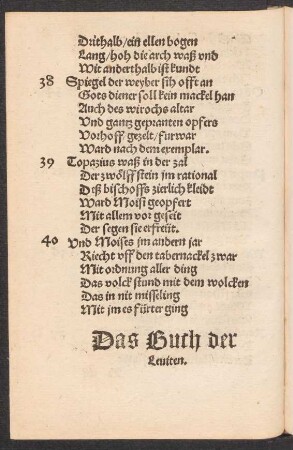 Drithalb / ein ellen bogen
Lang / hoh die arch waß vnd
Wit anderthalb ist kundt
38 Spiegel der weyber sih offt an
Gots diener soll kein mackel han
Auch des wirochs altar
Vnd gantz gepranten opfers
Vorhoff gezelt / furwar
Ward nach dem exemplar.
39 Topazius waß in der zal
Der zwölff stein jm rational
Deß bischoffs zierlich kleidt
Ward Moisi geopfert
Mit allem vor geseit
Der segen sie erfreüt.
40 Vnd Moises jm andern jar
Riecht vff den tabernackel zwar
Mit ordnung aller ding
Das volck stund mit dem wolcken
Das in nit misseling
Mit jm es fürter ging
Das Buch der
Leuiten.